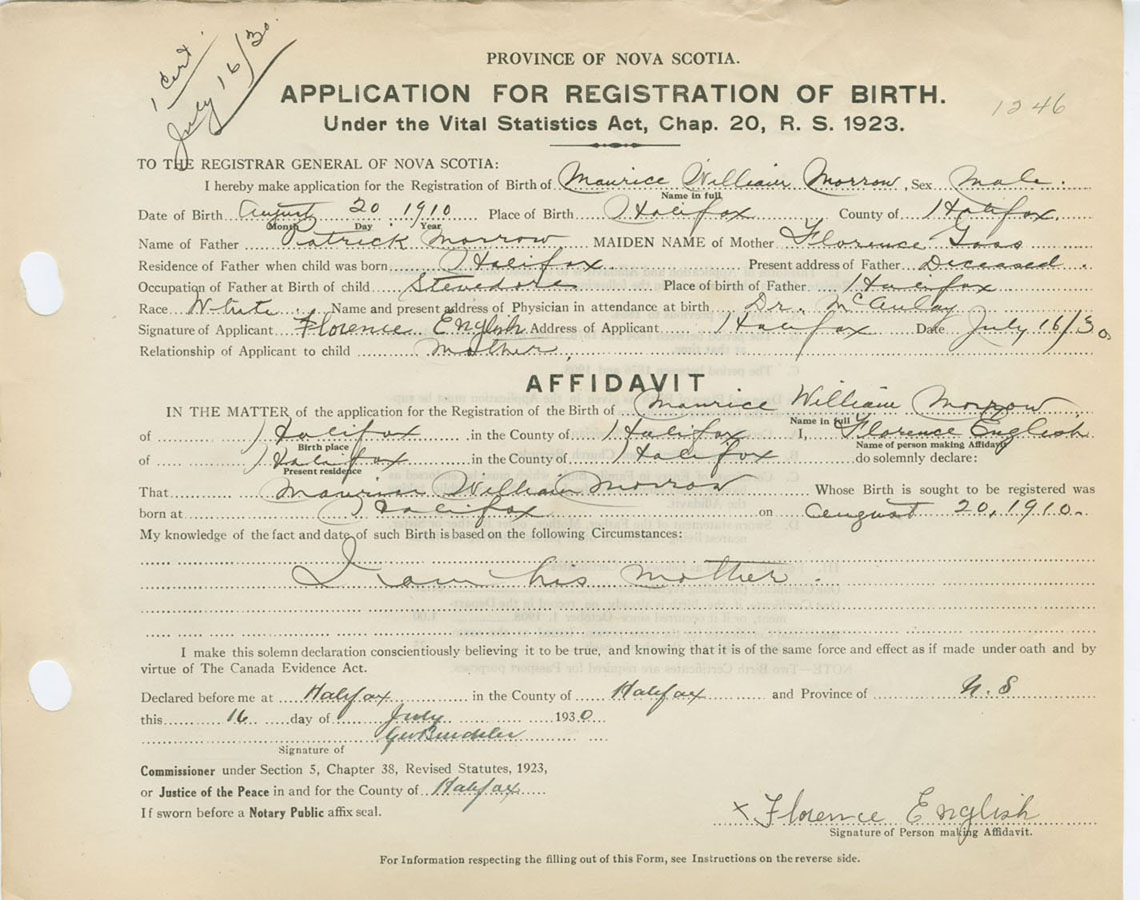 1 Cert.
July 16/30
PROVINCE OF NOVA SCOTIA.
APPLICATION FOR REGISTRATION OF BIRTH.
1246
Under the Vital Statistics Act, Chap. 20, R. S. 1923.
TO THE REGISTRAR GENERAL OF NOVA SCOTIA:
I hereby make application for the Registration of Birth of Maurice William Morrow, Sex Male.
Name in full
Date of Birth August 20 1910 Place of Birth Halifax County of Halifax.
Month Day Year
Name of Father Patrick Morrow MAIDEN NAME of Mother Florence Goss
Residence of Father when child was born Halifax. Present address of Father Deceased.
Occupation of Father at Birth of child Stevedore Place of birth of Father Halifax
Race White Name and present address of Physician in attendance at birth Dr. McAulay
Signature of Applicant Florence English Address of Applicant Halifax Date July 16/30
Relationship of Applicant to child Mother,
AFFIDAVIT
IN THE MATTER of the application for the Registration of the Birth of Maurice William Morrow
Name in full
of Halifax in the County of Halifax I, Florence English
Birth place Name of person making Affidavit
of Halifax in the County of Halifax do solemnly declare:
Present residence
That William Morrow Whose Birth is sought to be registered was
born at Halifax on August 20, 1910.
My knowledge of the fact and date of such Birth is based on the following Circumstances:
I am his mother.
I make this solemn declaration conscientiously believing it to be true, and knowing that it is of the same force and effect as if made under oath and by
virtue of The Canada Evidence Act.
Declared before me at Halifax in the County of Halifax and Province of N. S
this 16 day of July 1930
Signature of
Commissioner under Section 5, Chapter 38, Revised Statutes, 1923,
or Justice of the Peace in and for the County of Halifax
If sworn before a Notary Public affix seal.
x Florence English
Signature of Person making Affidavit.
For Information respecting the filling out of this Form, see Instructions on the reverse side.